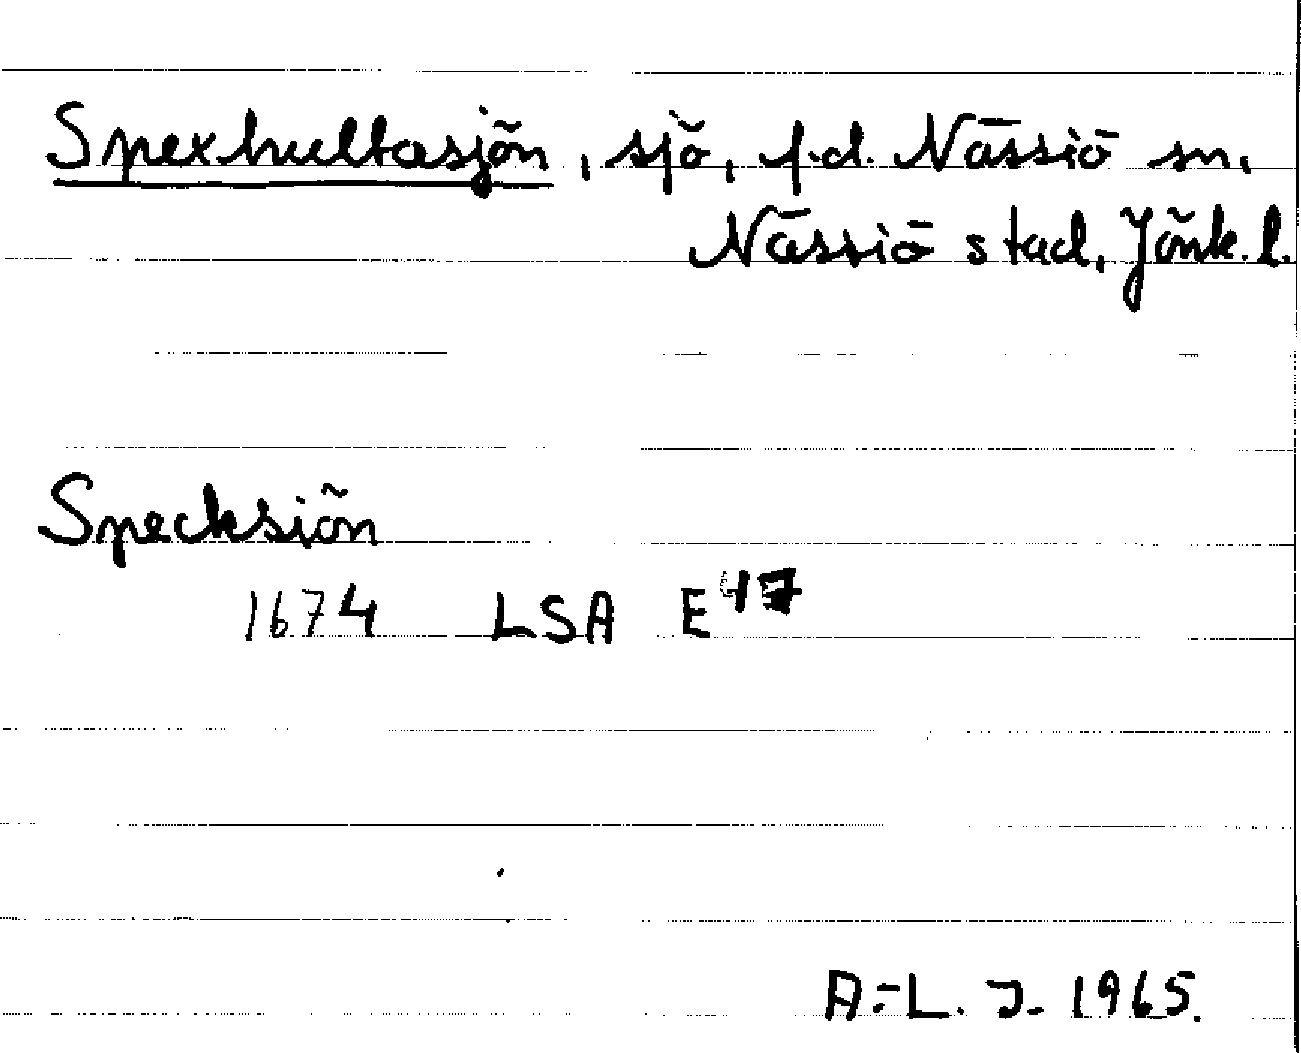 Spexhultasjön, sjö, f.d. Nässjö sn,
Nässjö stad, Jönk. l.
Specksiön
1674 LSA E47
A-L. J. 1965.